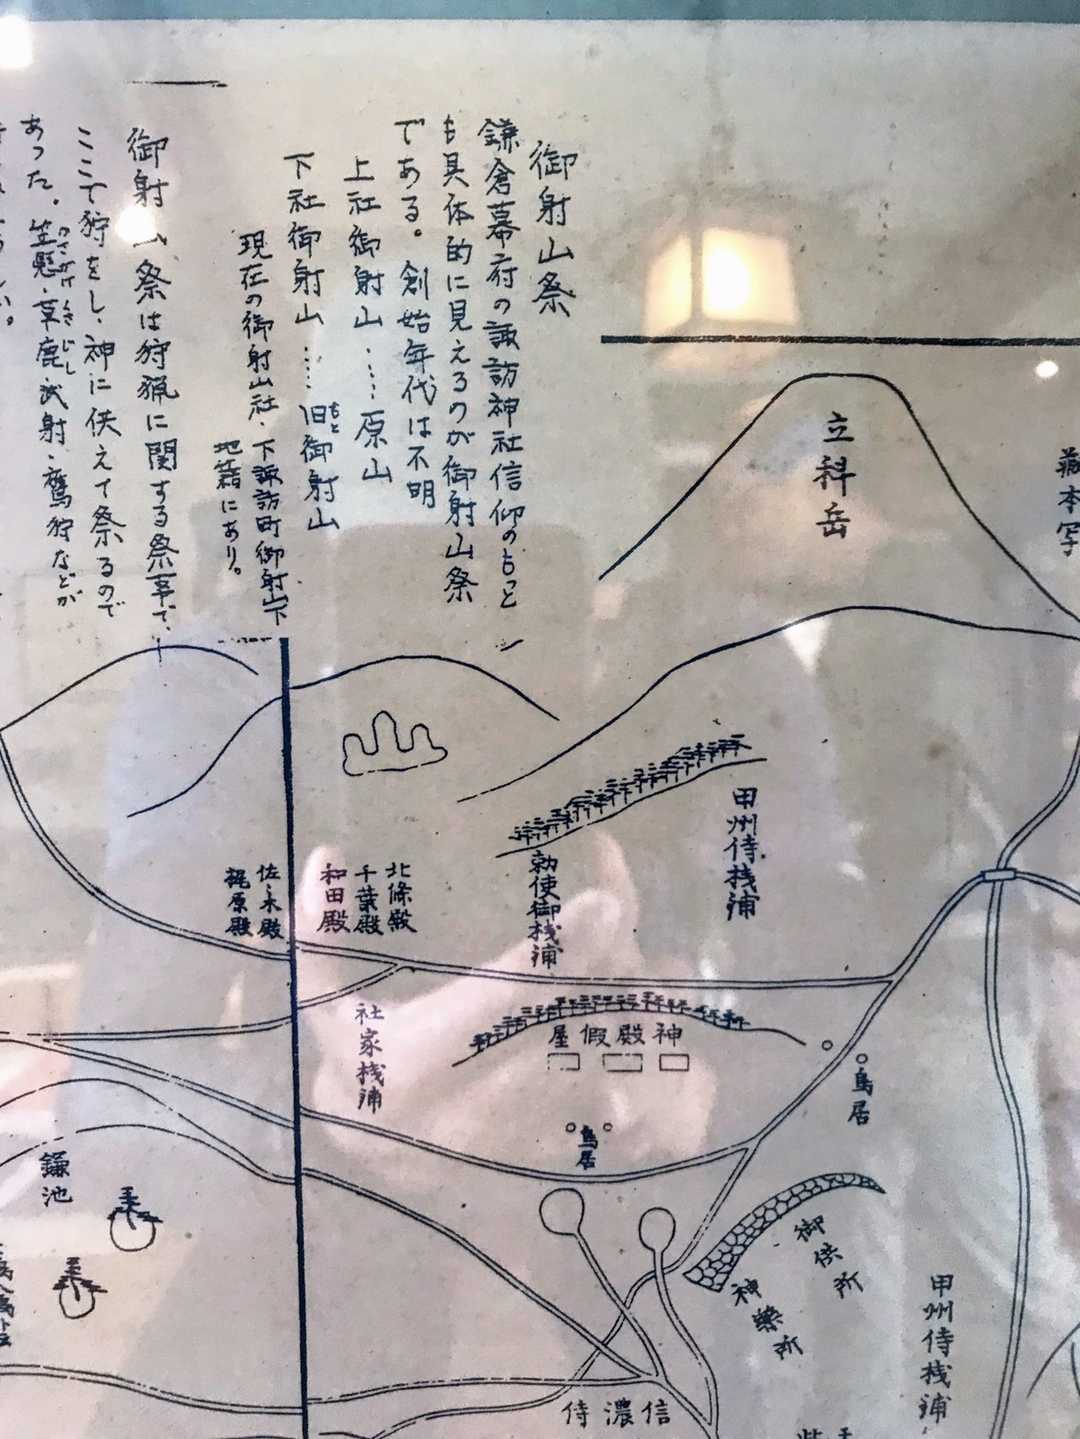 御射山祭
鎌倉幕府の諏訪神社信仰のもっと
も具体的に見えるのが御射山祭
である。創始年代は不明
上社御射山‥‥原山
下社御射山‥‥旧御射山
もと
現在の御射山社、下諏訪町御射山下
地籍にあり。
御射山祭は狩猟に関する祭事で、
ここで狩をし、神に供えて祭るので
あった。笠懸・草鹿式射・鷹狩などが
かさがけ くさじし
立科岳
蔵本写
甲州侍桟浦
勅使御桟浦
北條殿
千葉殿
和田殿
佐々木殿
梶原殿
社家桟浦
屋假殿神
鳥居
鳥居
鎌池
御供所
神樂所
甲州侍桟浦
侍濃信